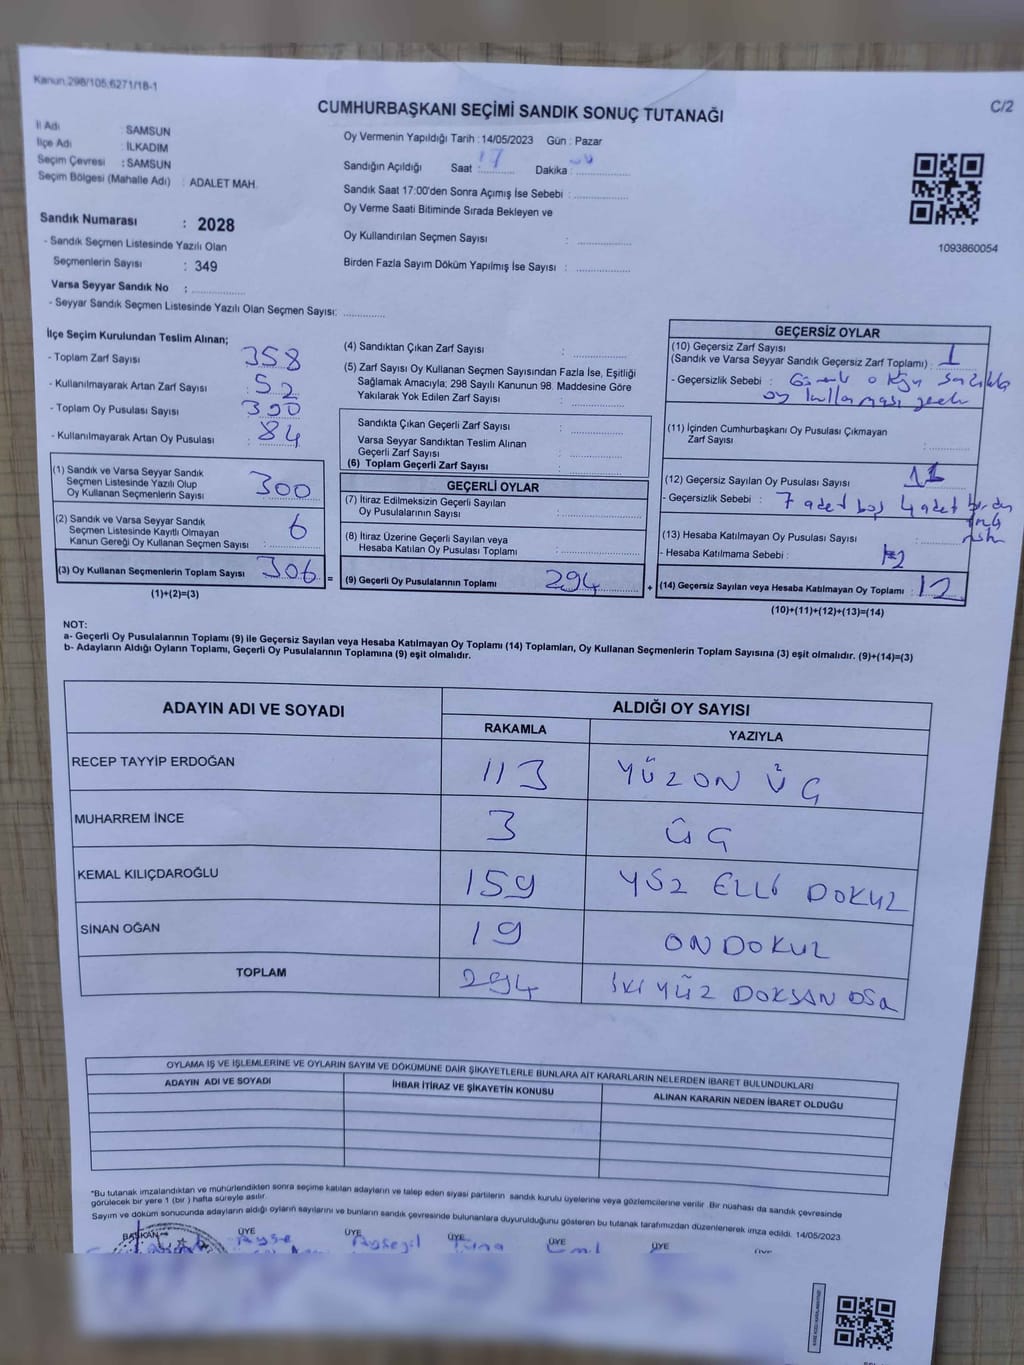 Kanun.298/105,6271/18-1
C/2
CUMHURBAŞKANI SEÇİMİ SANDIK SONUÇ TUTANAĞI
İl Adı : SAMSUN
İlçe Adı : İLKADIM
Seçim Çevresi : SAMSUN
Seçim Bölgesi (Mahalle Adı) : ADALET MAH.
Oy Vermenin Yapıldığı Tarih : 14/05/2023 Gün : Pazar
Sandığın Açıldığı Saat : 17 Dakika :
Sandık Saat 17:00'den Sonra Açımış İse Sebebi :
Oy Verme Saati Bitiminde Sırada Bekleyen ve
Oy Kullandırılan Seçmen Sayısı :
Birden Fazla Sayım Döküm Yapılmış İse Sayısı :
1093860054
Sandık Numarası : 2028
- Sandık Seçmen Listesinde Yazılı Olan
Seçmenlerin Sayısı : 349
Varsa Seyyar Sandık No :
- Seyyar Sandık Seçmen Listesinde Yazılı Olan Seçmen Sayısı:
İlçe Seçim Kurulundan Teslim Alınan;
- Toplam Zarf Sayısı : 358
- Kullanılmayarak Artan Zarf Sayısı : 52
- Toplam Oy Pusulası Sayısı : 390
- Kullanılmayarak Artan Oy Pusulası : 84
(1) Sandık ve Varsa Seyyar Sandık
Seçmen Listesinde Yazılı Olup
Oy Kullanan Seçmenlerin Sayısı : 300
(2) Sandık ve Varsa Seyyar Sandık
Seçmen Listesinde Kayıtlı Olmayan
Kanun Gereği Oy Kullanan Seçmen Sayısı : 6
(3) Oy Kullanan Seçmenlerin Toplam Sayısı : 306 =
(1)+(2)=(3)
(4) Sandıktan Çıkan Zarf Sayısı :
(5) Zarf Sayısı Oy Kullanan Seçmen Sayısından Fazla İse, Eşitliği
Sağlamak Amacıyla; 298 Sayılı Kanunun 98. Maddesine Göre
Yakılarak Yok Edilen Zarf Sayısı :
Sandıkta Çıkan Geçerli Zarf Sayısı :
Varsa Seyyar Sandıktan Teslim Alınan
Geçerli Zarf Sayısı :
(6) Toplam Geçerli Zarf Sayısı :
GEÇERLİ OYLAR
(7) İtiraz Edilmeksizin Geçerli Sayılan
Oy Pusulalarının Sayısı :
(8) İtiraz Üzerine Geçerli Sayılan veya
Hesaba Katılan Oy Pusulası Toplamı :
(9) Geçerli Oy Pusulalarının Toplamı 294 +
GEÇERSİZ OYLAR
(10) Geçersiz Zarf Sayısı
(Sandık ve Varsa Seyyar Sandık Geçersiz Zarf Toplamı) : 1
- Geçersizlik Sebebi :
oy kullanması
(11) İçinden Cumhurbaşkanı Oy Pusulası Çıkmayan
Zarf Sayısı :
(12) Geçersiz Sayılan Oy Pusulası Sayısı : 11
- Geçersizlik Sebebi : 7 adet boş 4 adet birden
(13) Hesaba Katılmayan Oy Pusulası Sayısı :
- Hesaba Katılmama Sebebi :
(14) Geçersiz Sayılan veya Hesaba Katılmayan Oy Toplamı : 12
(10)+(11)+(12)+(13)=(14)
NOT:
a- Geçerli Oy Pusulalarının Toplamı (9) ile Geçersiz Sayılan veya Hesaba Katılmayan Oy Toplamı (14) Toplamları, Oy Kullanan Seçmenlerin Toplam Sayısına (3) eşit olmalıdır. (9)+(14)=(3)
b- Adayların Aldığı Oyların Toplamı, Geçerli Oy Pusulalarının Toplamına (9) eşit olmalıdır.
ADAYIN ADI VE SOYADI
ALDIĞI OY SAYISI
RAKAMLA YAZIYLA
RECEP TAYYİP ERDOĞAN 113 YÜZON ÜÇ
MUHARREM İNCE 3 ÜÇ
KEMAL KILIÇDAROĞLU 159 YÜZ ELLİ DOKUZ
SİNAN OĞAN 19 ONDOKUZ
TOPLAM 294 İKİ YÜZ DOKSAN
OYLAMA İŞ VE İŞLEMLERİNE VE OYLARIN SAYIM VE DÖKÜMÜNE DAİR ŞİKAYETLERLE BUNLARA AİT KARARLARIN NELERDEN İBARET BULUNDUKLARI
ADAYIN ADI VE SOYADI İHBAR İTİRAZ VE ŞİKAYETİN KONUSU ALINAN KARARIN NEDEN İBARET OLDUĞU
*Bu tutanak imzalandıktan ve mühürlendikten sonra seçime katılan adayların ve talep eden siyasi partilerin sandık kurulu üyelerine veya gözlemcilerine verilir. Bir nüshası da sandık çevresinde
görülecek bir yere 1 (bir) hafta süreyle asılır.
Sayım ve döküm sonucunda adayların aldığı oyların sayılarını ve bunların sandık çevresinde bulunanlara duyurulduğunu gösteren bu tutanak tarafımızdan düzenlenerek imza edildi. 14/05/2023
BAŞKAN ÜYE ÜYE ÜYE ÜYE ÜYE
Ayşe Ayşegül Tuna